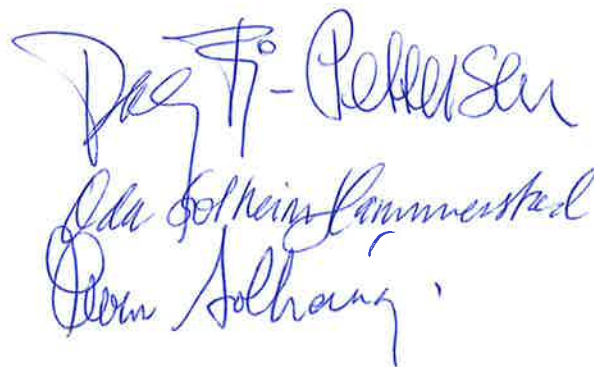 Dag Fj-Pettersen
Oda Solheim Hammerstad
Solhaug